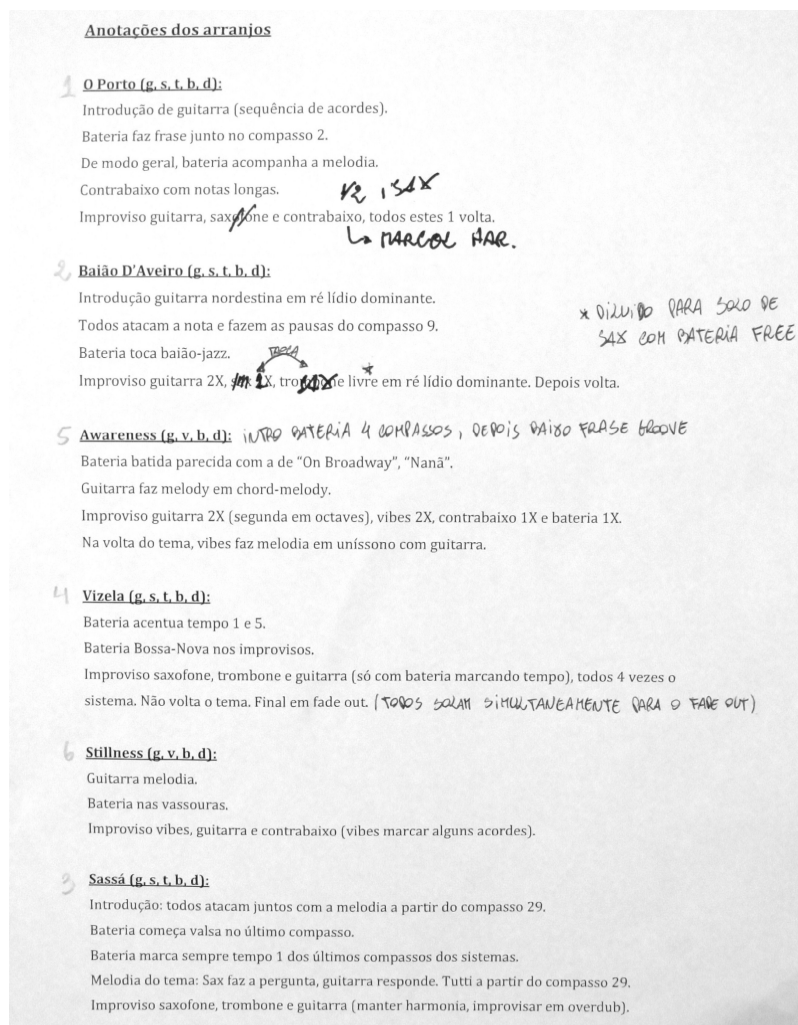 Anotações dos arranjos
1 O Porto (g, s, t, b, d):
Introdução de guitarra (sequência de acordes).
Bateria faz frase junto no compasso 2.
De modo geral, bateria acompanha a melodia.
Contrabaixo com notas longas.
1/2 , SAX
Improviso guitarra, saxofone e contrabaixo, todos estes 1 volta.
↳ MARCOL HAR.
2 Baião D'Aveiro (g, s, t, b, d):
Introdução guitarra nordestina em ré lídio dominante.
* DILUIDO PARA SOLO DE
Todos atacam a nota e fazem as pausas do compasso 9.
SAX COM BATERIA FREE
Bateria toca baião-jazz.
TROCA
Improviso guitarra 2X, 2X, trombone SAX livre * em ré lídio dominante. Depois volta.
5 Awareness (g, v, b, d): INTRO BATERIA 4 COMPASSOS, DEPOIS BAIXO FRASE GROOVE
Bateria batida parecida com a de "On Broadway", "Nanã".
Guitarra faz melody em chord-melody.
Improviso guitarra 2X (segunda em octaves), vibes 2X, contrabaixo 1X e bateria 1X.
Na volta do tema, vibes faz melodia em uníssono com guitarra.
4 Vizela (g, s, t, b, d):
Bateria acentua tempo 1 e 5.
Bateria Bossa-Nova nos improvisos.
Improviso saxofone, trombone e guitarra (só com bateria marcando tempo), todos 4 vezes o
sistema. Não volta o tema. Final em fade out. (TODOS SOLAM SIMULTANEAMENTE PARA O FADE OUT)
6 Stillness (g, v, b, d):
Guitarra melodia.
Bateria nas vassouras.
Improviso vibes, guitarra e contrabaixo (vibes marcar alguns acordes).
3 Sassá (g, s, t, b, d):
Introdução: todos atacam juntos com a melodia a partir do compasso 29.
Bateria começa valsa no último compasso.
Bateria marca sempre tempo 1 dos últimos compassos dos sistemas.
Melodia do tema: Sax faz a pergunta, guitarra responde. Tutti a partir do compasso 29.
Improviso saxofone, trombone e guitarra (manter harmonia, improvisar em overdub).